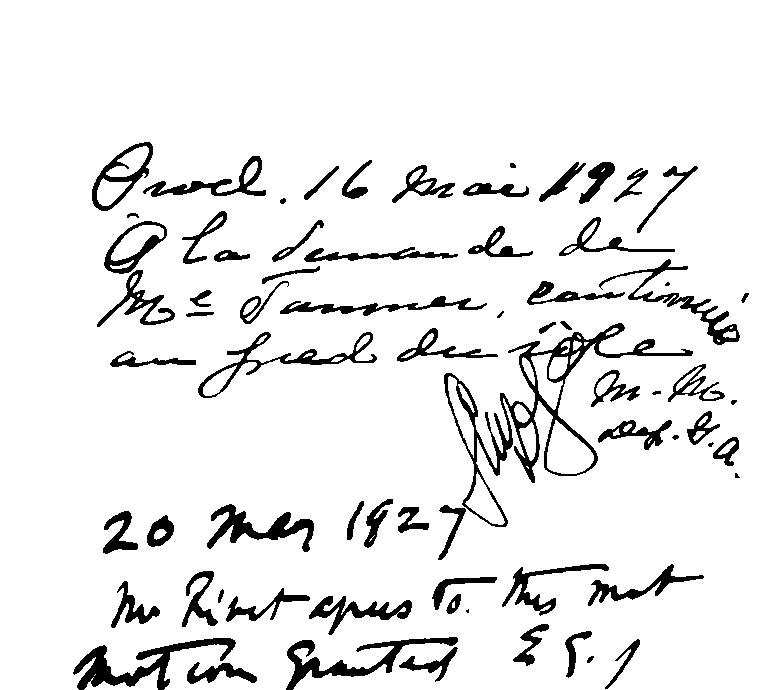 Prod. 16 mai 1927
A la demande de
Me Tanner, continuée
au pied du rôle
M. M.
Dep. G. A.
20 May 1927
Mr Rivet agrees to this mot
Motion granted E G. J